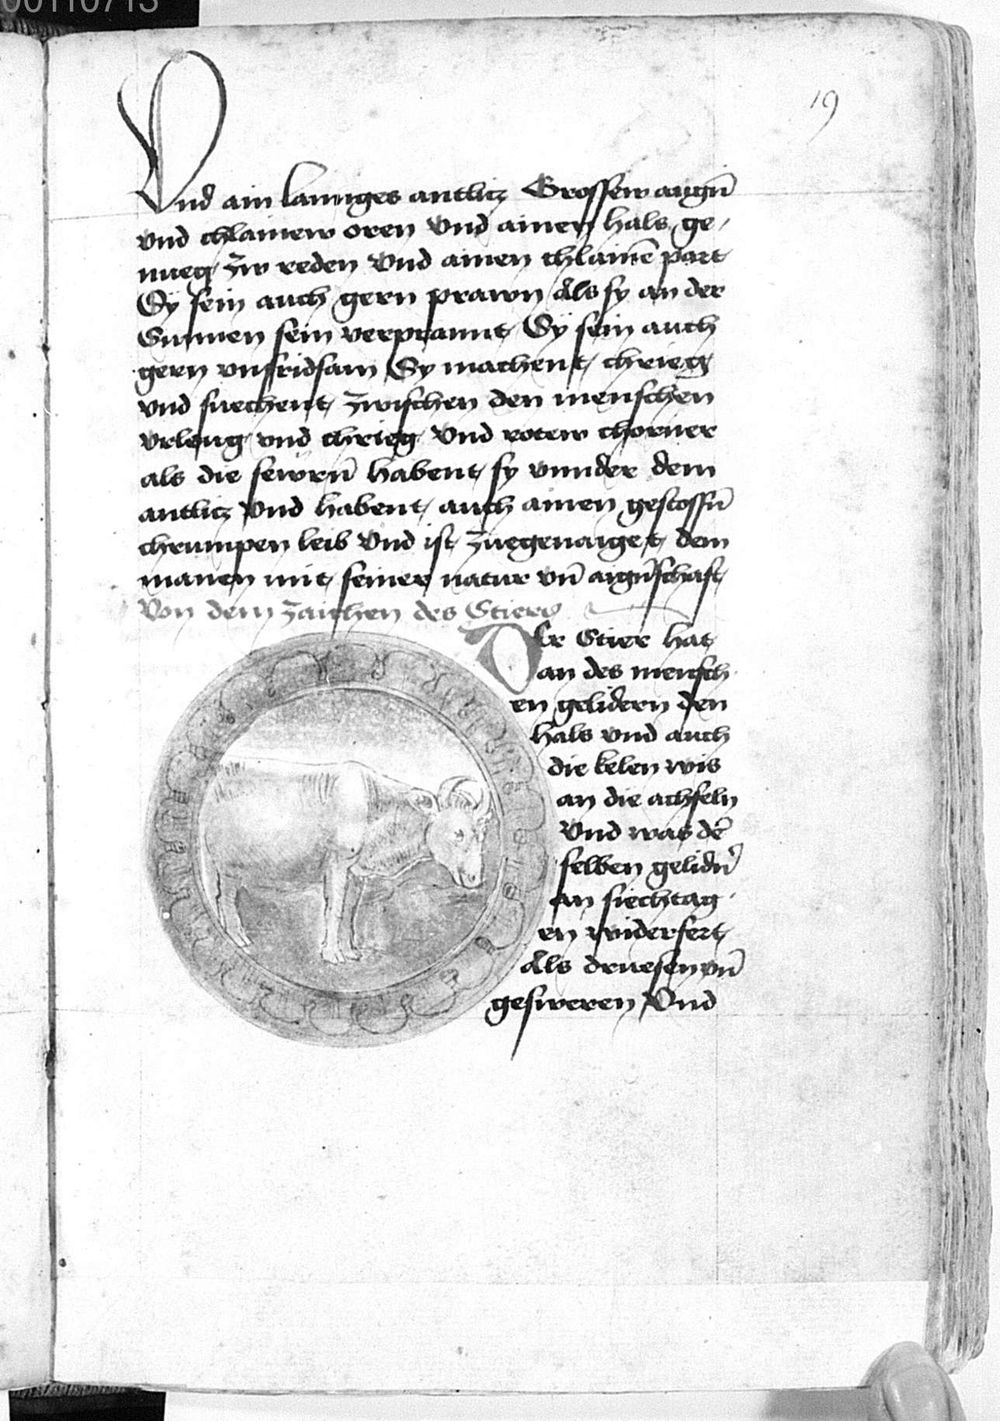 00110713
19
Vnd ain lannges antlitz Grossew augn̄
vnd chlainew oren Vnd ainen hals ge,
nueg zw reden Vnd ainen chlainē part
Sÿ sein auch gern prawn Als sy an der
Sunnen sein verprannt Sÿ sein auch
gern vnfridsam Sy machent chrieg
vnd suechent zwischen den menschen
vrleug vnd chrieg Vnd rotew chorner
als die sewrn̄ habent sy vnnder dem
antlitz Vnd habent auch ainen gestossn̄
chrumpen leib Vnd ist zuegenaiget dem
manen mit seiner natur vn̄ aignschaft
Von dem zaichen des Stiers
Der Stier hat
an des mensch
en gelidern den
hals vnd auch
die kelen wis
an die achseln
Vnd was der
selben gelidn̄
an siechtag
en widerfert
Als druesen vn̄
gesweren Vnd